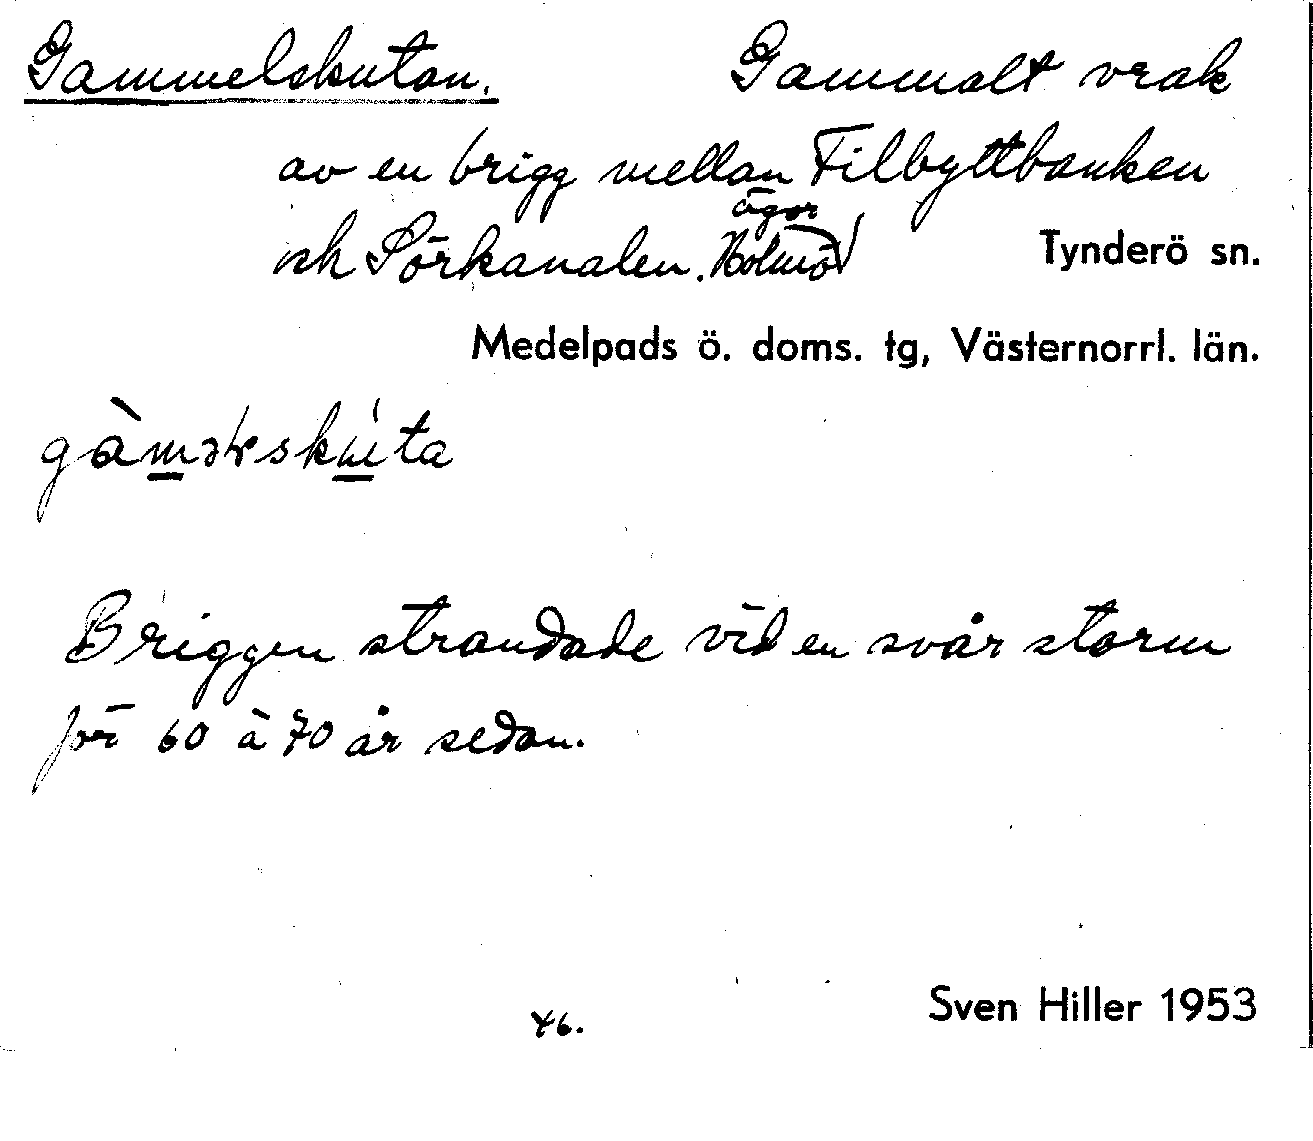 Gammelskutan. Gammalt vrak
av en brigg mellan Filbyttbanken
och Sörkanalen. Holmö ägor Tynderö sn.
Medelpads ö. doms. tg, Västernorrl. län.
Briggen strandade vid en svår storm
för 60 à 70 år sedan.
46. Sven Hiller 1953